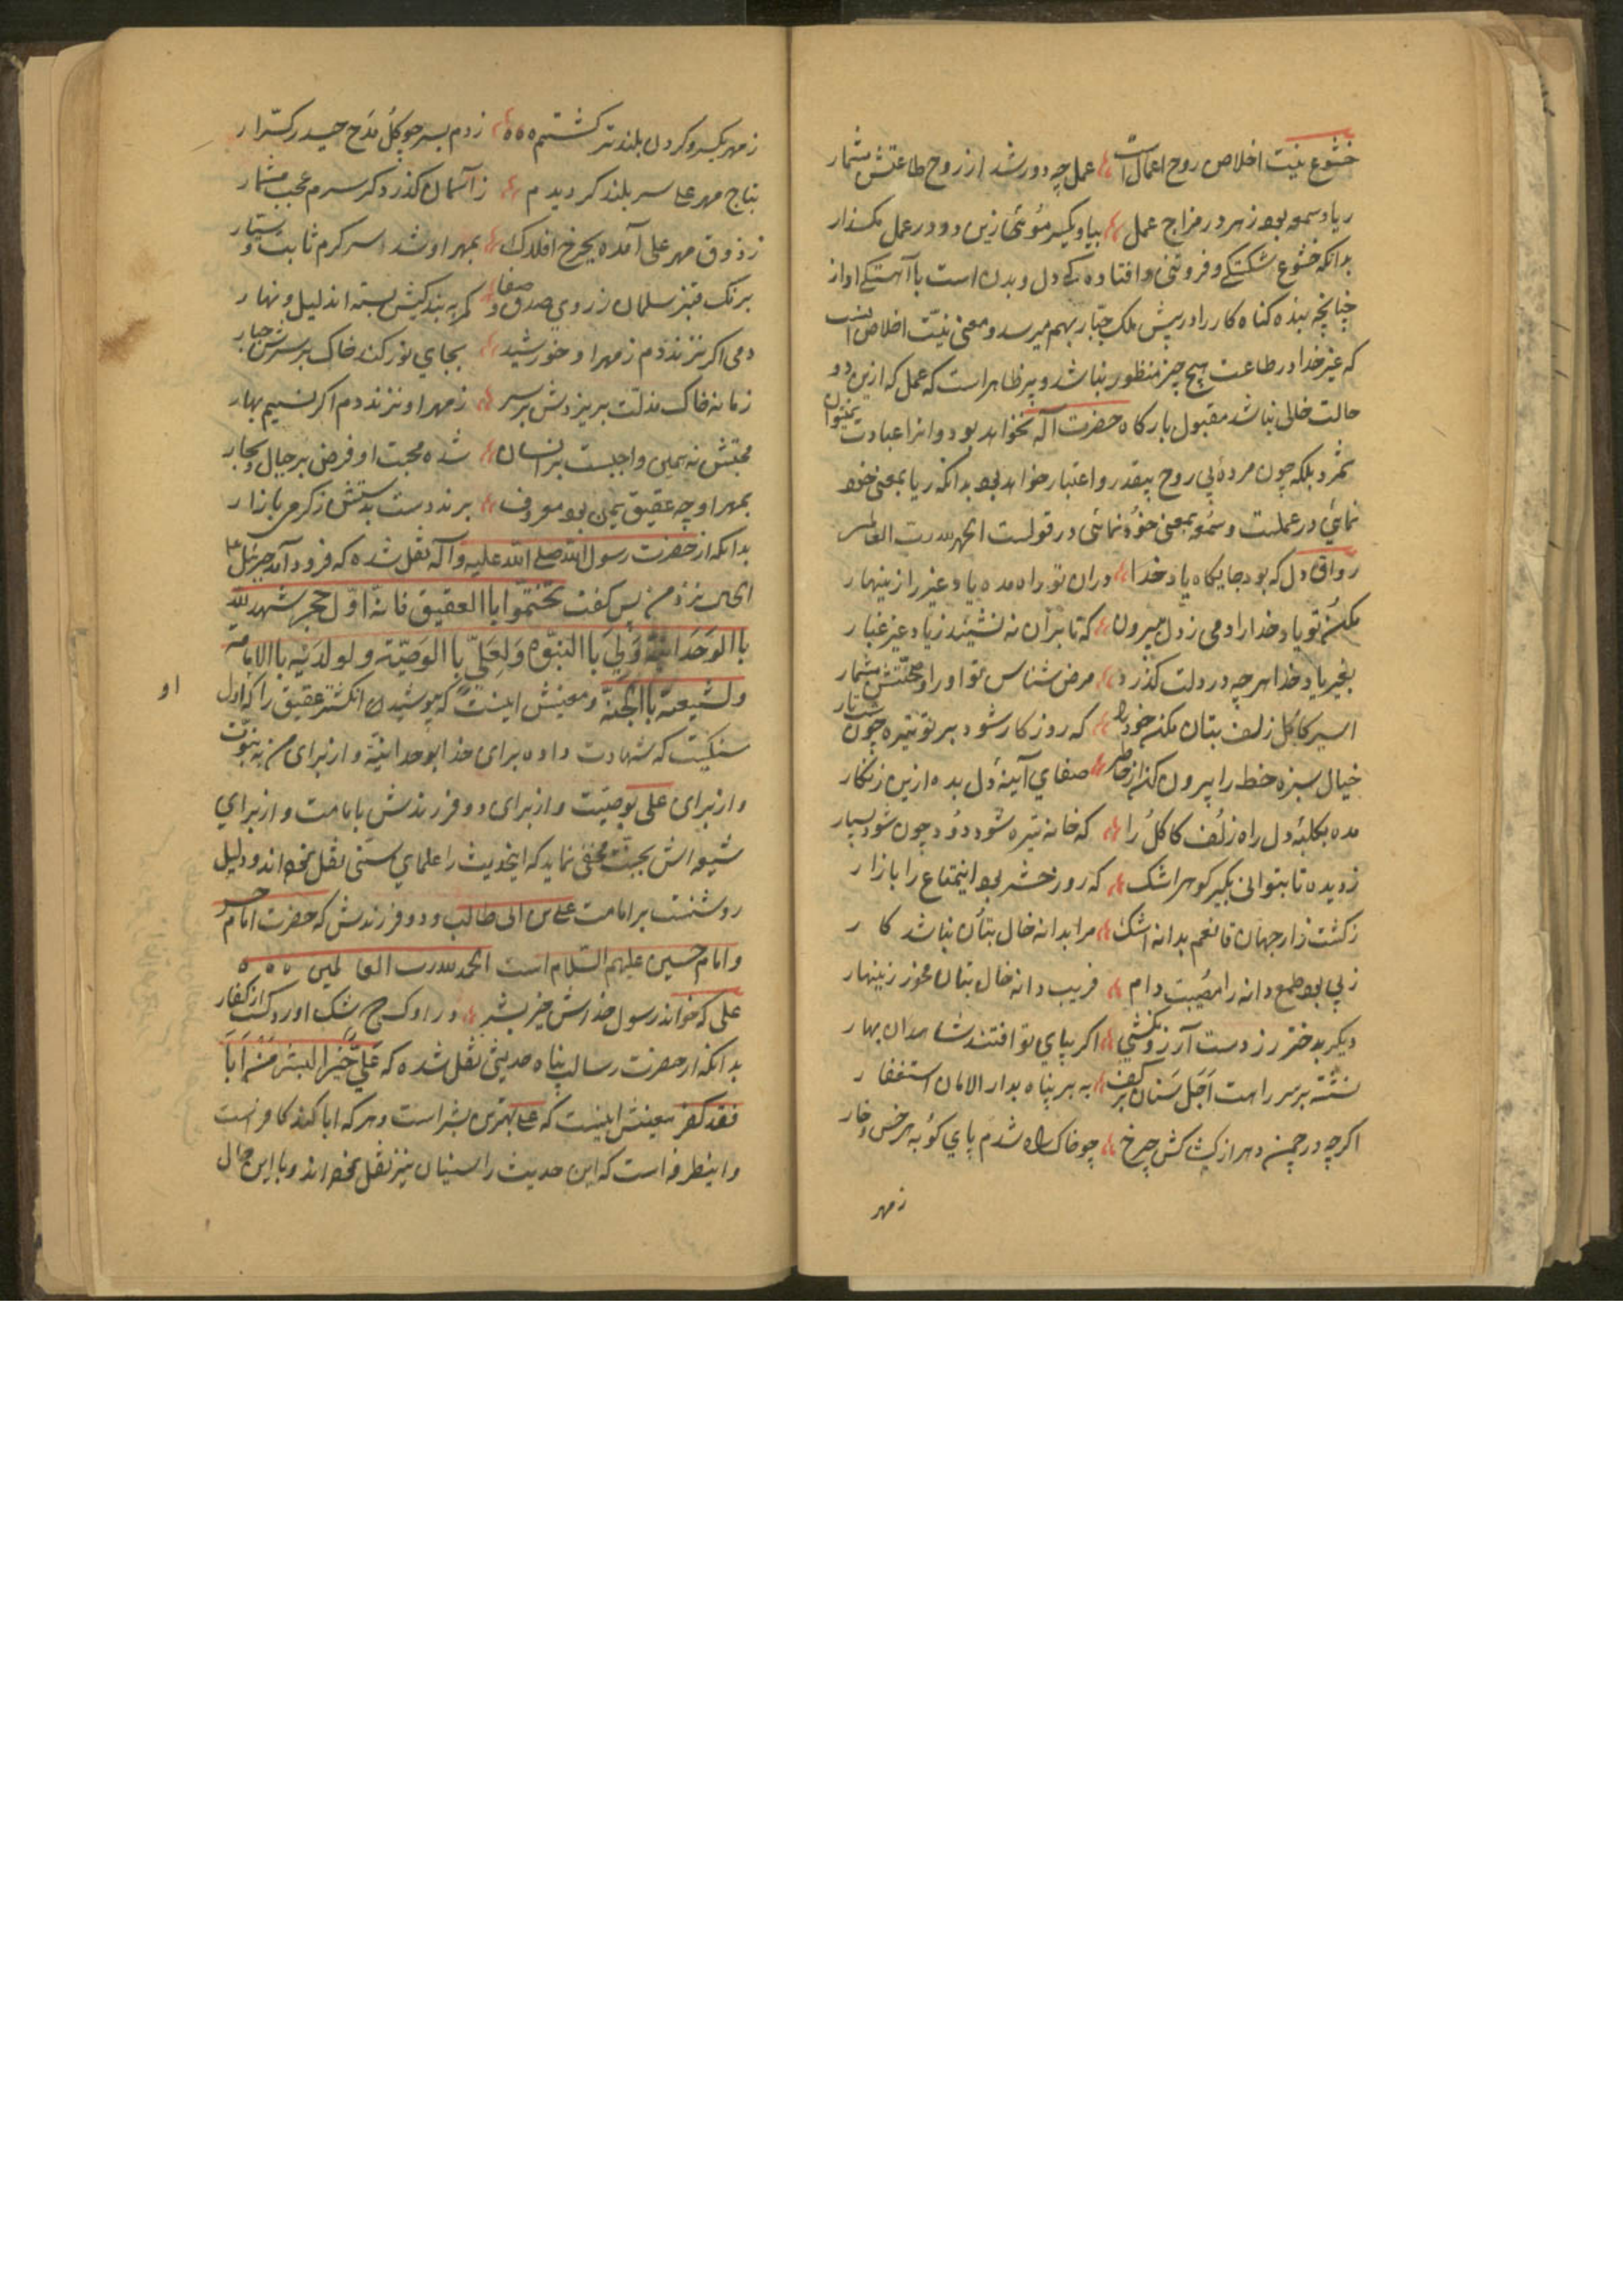 خشوع نیت اخلاص روح اعمالست عمل چه دور شد از روح طاعتش مشمار
ریا و سمعه بود زهر در مزاج عمل بیا و یکسر موئی ازین دو در عمل مگذار
بدانکه خشوع شکستگی و فروتنی و افتاده کی دل و بدن است با آهستگی اواز
چنانچه بنده گناه کار را در پیش ملک جبار بهم میرسد و معنی نیت اخلاص انست
که غیر خدا در طاعت هیچ چیز منظور نباشد و پر ظاهر است که عمل که ازین دو
حالت خالی نباشد مقبول بارگاه حضرت اله نخواهد بود و انرا عبادت نمیتوان
شمرد بلکه چون مردهٔ بی روح بیقدر و اعتبار خواهد بود بدانکه ریا بمعنی خود
نمائی در عملست و سمعه بمعنی خود نمائی در قولست الحمد لله رب العالمین
رواق دل که بود جایگاه یاد خدا دران تو راه مده یاد غیر را زینهار
مکن تو یاد خدا را دمی ز دل بیرون که تا بر آن نه نشیند زیاد غیر غبار
بغیر یاد خدا هر چه در دلت گذرد مرض شناس تو او را و صحتش مشمار
اسیر کاکل زلف بتان مکن خود را که روزگار شود بر تو تیره چون شب تار
خیال سبزه خط را بیرون کن از خاطر صفای آینهٔ دل بده ازین زنگار
مده بکلبهٔ دل راه زلف کاکل را که خانه تیره شود دود چون شود بسیار
ز دیده تا بتوانی بگیر گوهر اشک که روز حشر بود اینمتاع را بازار
ز کشت زار جهان قانعم بدانه اشک مرا بدانه خال بتان نباشد کار
ز پی بود طمع دانه را مصیبت دام فریب دانه خال بتان مخور زینهار
دیگر بدختر رز دست آرزو نکشی اگر بپای تو افتند شاهدان بهار
نشسته بر سر راهت اجل سنان بر کف به بر پناه بدار الامان استغفار
اگر چه در چمن دهر از کشاکش چرخ چو خاک راه شدم پای کوبه هر خس و خار
ز مهر
ز مهر یکسر و گردن بلندتر گشتم زدم بسر چو گل مدح حیدر کرار
بتاج مهر علی سر بلند گردیدم ز آسمان گذرد گر سرم عجب مشمار
ز ذوق مهر علی آمده بچرخ افلاک بمهر او شده سر گرم ثابت و سیار
برنگ قنبر سلمان ز روی صدق و صفا کمر به بندگیش بسته اند لیل و نهار
دمی اگر نزند دم ز مهر او خورشید بجای نور کند خاک بر سرش جبار
زمانه خاک مذلت بریزدش بر سر ز مهر او نزند دم اگر نسیم بهار
محبتش نه همین واجبست بر انسان شده محبت او فرض بر جبال و بحار
بمهر او چه عقیق یمن بود معروف برند دست بدستش ز گرمی بازار
بدانکه از حضرت رسول الله صلی الله علیه و آله نقل شده که فرود آمد جبرئیل علی
الحال نزد من پس گفت تختموا باالعقیق فانه اول حجر شهد لله
باالوحدانیة ولی باالنبوه ولعلی باالوصیة ولولدیه باالامامة
ولشیعته باالجنة و معنیش اینست که بپوشیدن انگشتر عقیق را که اول
او
سنگیست که شهادت داده برای خدا بوحدانیة و از برای من به نبوت
و از برای علی بوصیت و از برای دو فرزندش بامامت و از برای
شیعه اش بجنت مخفی نماید که اینحدیث را علمای سنی نقل نموده اند و دلیل
روشنست بر امامت علی بن ابی طالب و دو فرزندش که حضرت امام حسن
و امام حسین علیهم السلام است الحمد لله رب العالمین
علی که خواند رسول خداش خیر بشر در او کسی شک اورد گشت از کفار
بدانکه از حضرت رسالت پناه حدیثی نقل شده که علی خیر البشر من ابا
فقد کفر معنیش اینست که علی بهترین بشر است و هر که ابا کند کافر است
و اینطرفه است که این حدیث را سنیان نیز نقل نموده اند و با این حال